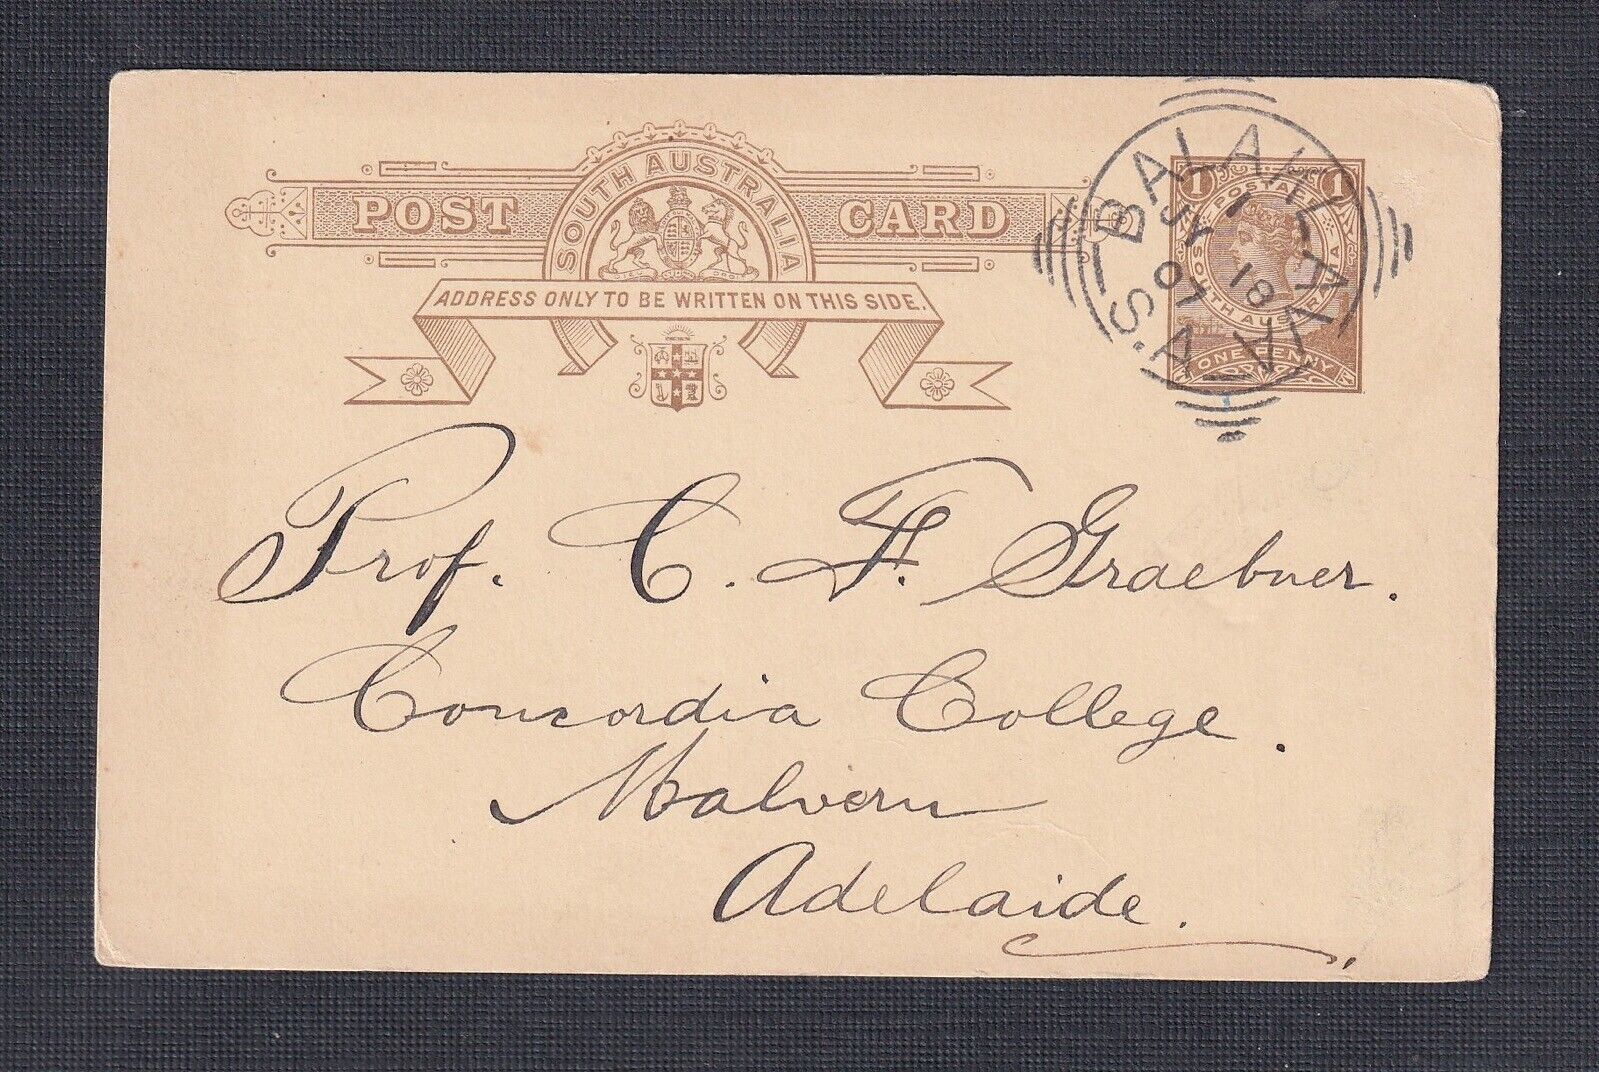 POST CARD
SOUTH AUSTRALIA
ADDRESS ONLY TO BE WRITTEN ON THIS SIDE.
1 POSTAGE 1
SOUTH AUSTRALIA
ONE PENNY
BALAKLAVA
1
JY 18
07
S.A
Prof. C. F. Graebner.
Concordia College.
Malvern
Adelaide.